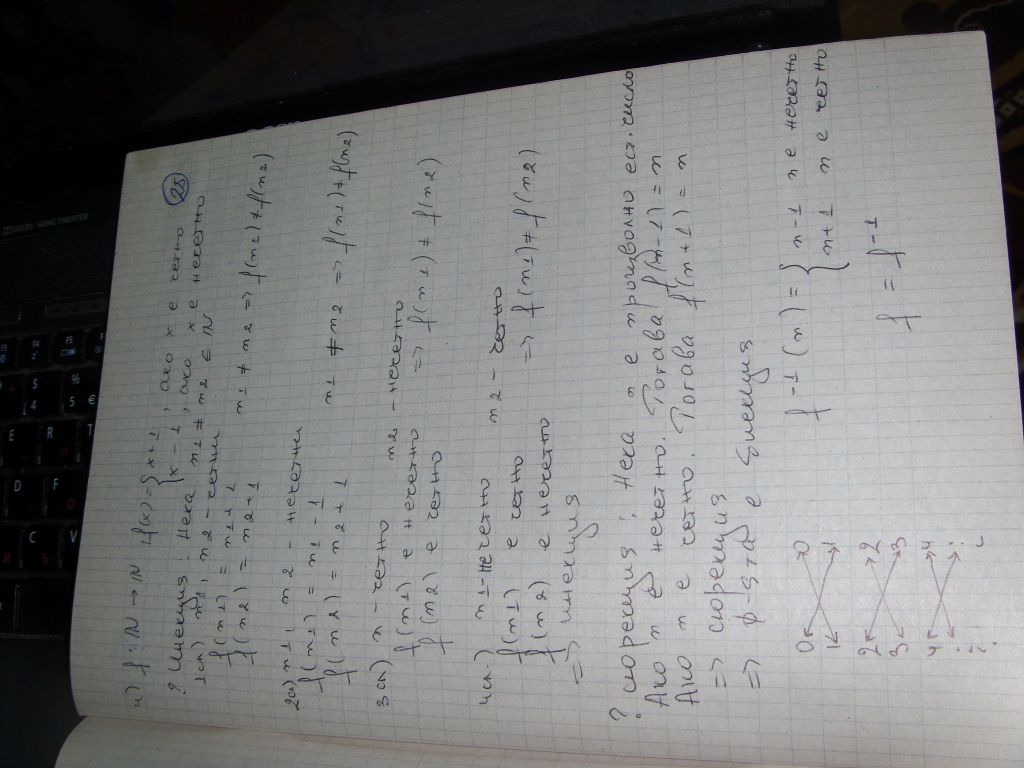 28
и) f: N → N :f(x) = { x+1, ако x е четно
x-1, ако x е нечетно
? Инекция: Нека n1 ≠ n2 ∈ N
1сл) n1, n2 - четни
f(n1) = n1+1
f(n2) = n2+1 n1 ≠ n2 => f(n1) ≠ f(n2)
2сл) n1, n2 - нечетни
f(n1) = n1 - 1
f(n2) = n2 + 1 n1 ≠ n2 => f(n1) ≠ f(n2)
3сл) n - четно n2 - нечетно
f(n1) е нечетно
f(n2) е четно => f(n1) ≠ f(n2)
4сл.) n1 - нечетно n2 - четно
f(n1) е четно
f(n2) е нечетно => f(n1) ≠ f(n2)
=> инекция
? сюрекция : Нека n е произволно ест. число
Ако n е нечетно. Тогава f(n-1) = n
Ако n е четно. Тогава f(n+1) = n
=> сюрекция
=> ф-ята е биекция
0 0
1 1
2 2
3 3
4 4
f -1 (n) = { n-1 n е нечетно
n+1 n е четно
f = f -1
DOLBY HOME THEATER
F5 F6
$ 4 % 5 €
E R T
D F
C V